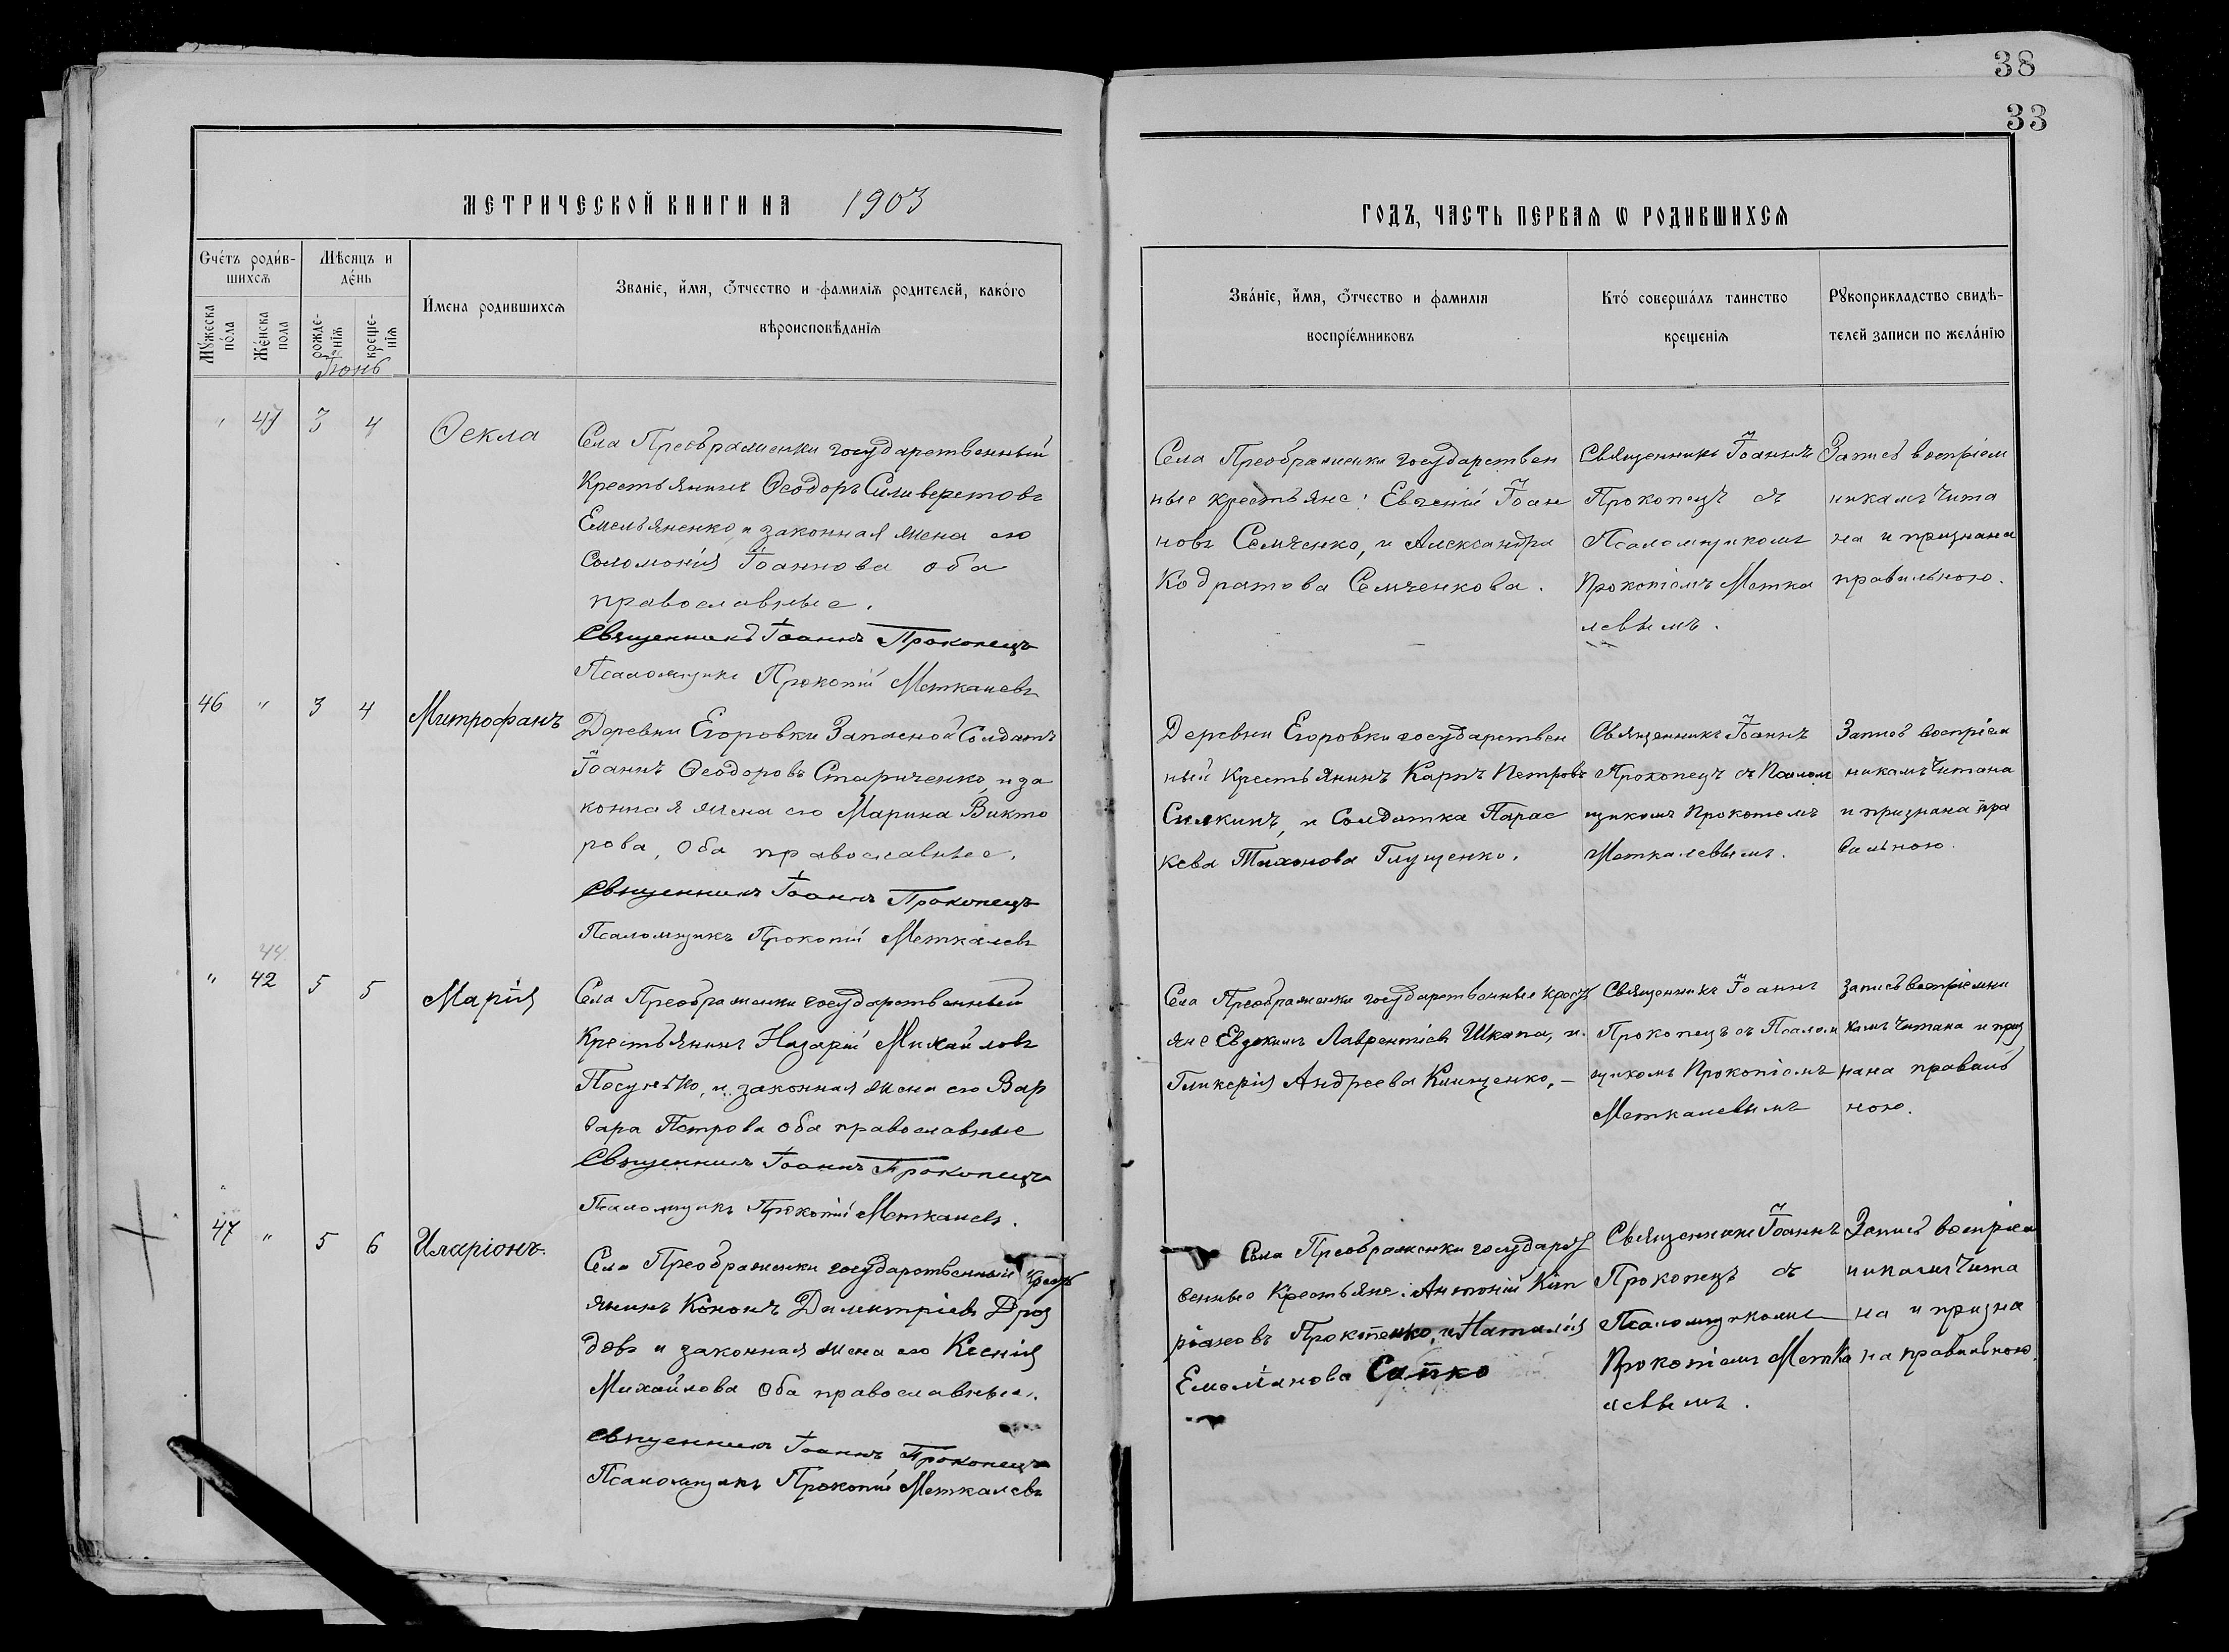 38
33
МЕТРИЧЕСКОЙ КНИГИ НА 1903
ГОДЪ, ЧАСТЬ ПЕРВАѦ Ѡ РОДИВШИХСѦ
Счéтъ роди́в-
шихсѧ
Мѣсяцъ и
дéнь
Мꙋ́жеска
пóла
Жéнска
пола
рожде-
нїѧ
креще-
нїѧ
И́мена родившихсѧ
Званїе, и́мя, ѻ҆́тчество и фамилїѧ родителей, какóго
вѣроисповѣданїѧ
Звáнїе, и́мя, ѻ҆́тчество и фамилїя
воспрїéмниковъ
Ктó совершáлъ таинство
крещенїѧ
Рꙋкоприкладство свидѣ-
телей записи по желáнїю
Іюнь
" 41 3 4 Ѳекла
Села Преображенки государственный
Крестьянинъ Ѳеодоръ Силиверстовъ
Емельяненко, и законная жена его
Соломонія Іоаннова оба
православные.
Священникъ Іоаннъ Прокопецъ
Псаломщикъ Прокопій Меткалевъ
Села Преображенки государствен
ные крестьяне: Евгеній Іоан
новъ Семченко, и Александра
Кодратова Семченкова.
Священникъ Іоаннъ
Прокопецъ съ
Псаломщикомъ
Прокопіемъ Метка
левымъ.
Запись воспріем
никамъ чита
на и признана
правильною.
46 " 3 4 Митрофанъ
Деревни Егоровки Запасной Солдатъ
Іоаннъ Ѳеодоровъ Стариченко, и за
конная жена его Марина Викто
рова, Оба православные.
Священникъ Іоаннъ Прокопецъ
Псаломщикъ Прокопій Меткалевъ
Деревни Егоровки государствен
ный Крестьянинъ Карпъ Петровъ
Силкинъ, и Солдатка Парас
кева Тихонова Глущенко.
Священникъ Іоаннъ
Прокопецъ съ Псалом
щикомъ Прокопіемъ
Меткалевымъ.
Запись воспріем
никамъ читана
и признана пра
вильною.
44
" 42 5 5 Марія
Села Преображенки государственный
Крестьянинъ Назарій Михайловъ
Посунько, и законная жена его Вар
вара Петрова оба православные
Священникъ Іоаннъ Прокопецъ
Псаломщикъ Прокопій Меткалевъ.
Села Преображенки государственные крест
яне Евдокимъ Лаврентіевъ Шкапа, и
Гликерія Андреева Клищенко, –
Священникъ Іоаннъ
Прокопецъ съ Псалом
щикомъ Прокопіемъ
Меткалевымъ
Запись воспріемни
камъ читана и приз
нана праваль
ною.
47 " 5 6 Иларіонъ.
Села Преображенки государственный крест
янинъ Кононъ Димитріевъ Дроз
довъ и законная жена его Ксенія
Михайлова Оба православные.
Священникъ Іоаннъ Прокопецъ
Псаломщикъ Прокопій Меткалевъ
Села Преображенки государст
венные Крестьяне: Антоній Кип
ріановъ Прокопенко, и Наталія
Емеліанова Сапко
Священникъ Іоаннъ
Прокопецъ съ
Псаломщикомъ
Прокопіемъ Метка
левымъ.
Запись воспріем
никамъ чита
на и призна
на правильною.